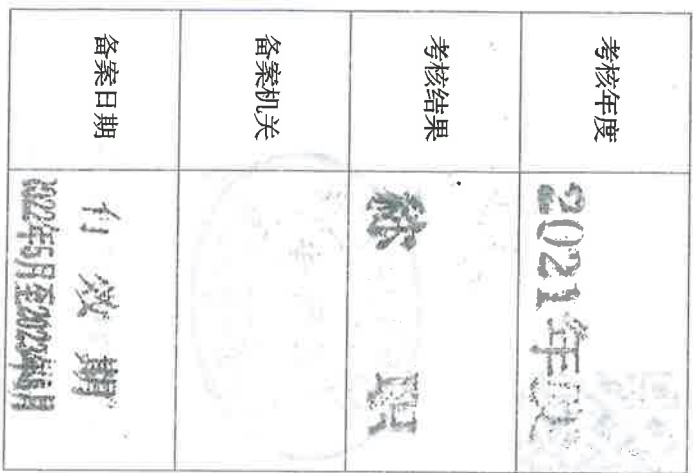 考核年度
2021年度
考核结果
称职
备案机关
备案日期
有效期
2022年5月至2023年5月